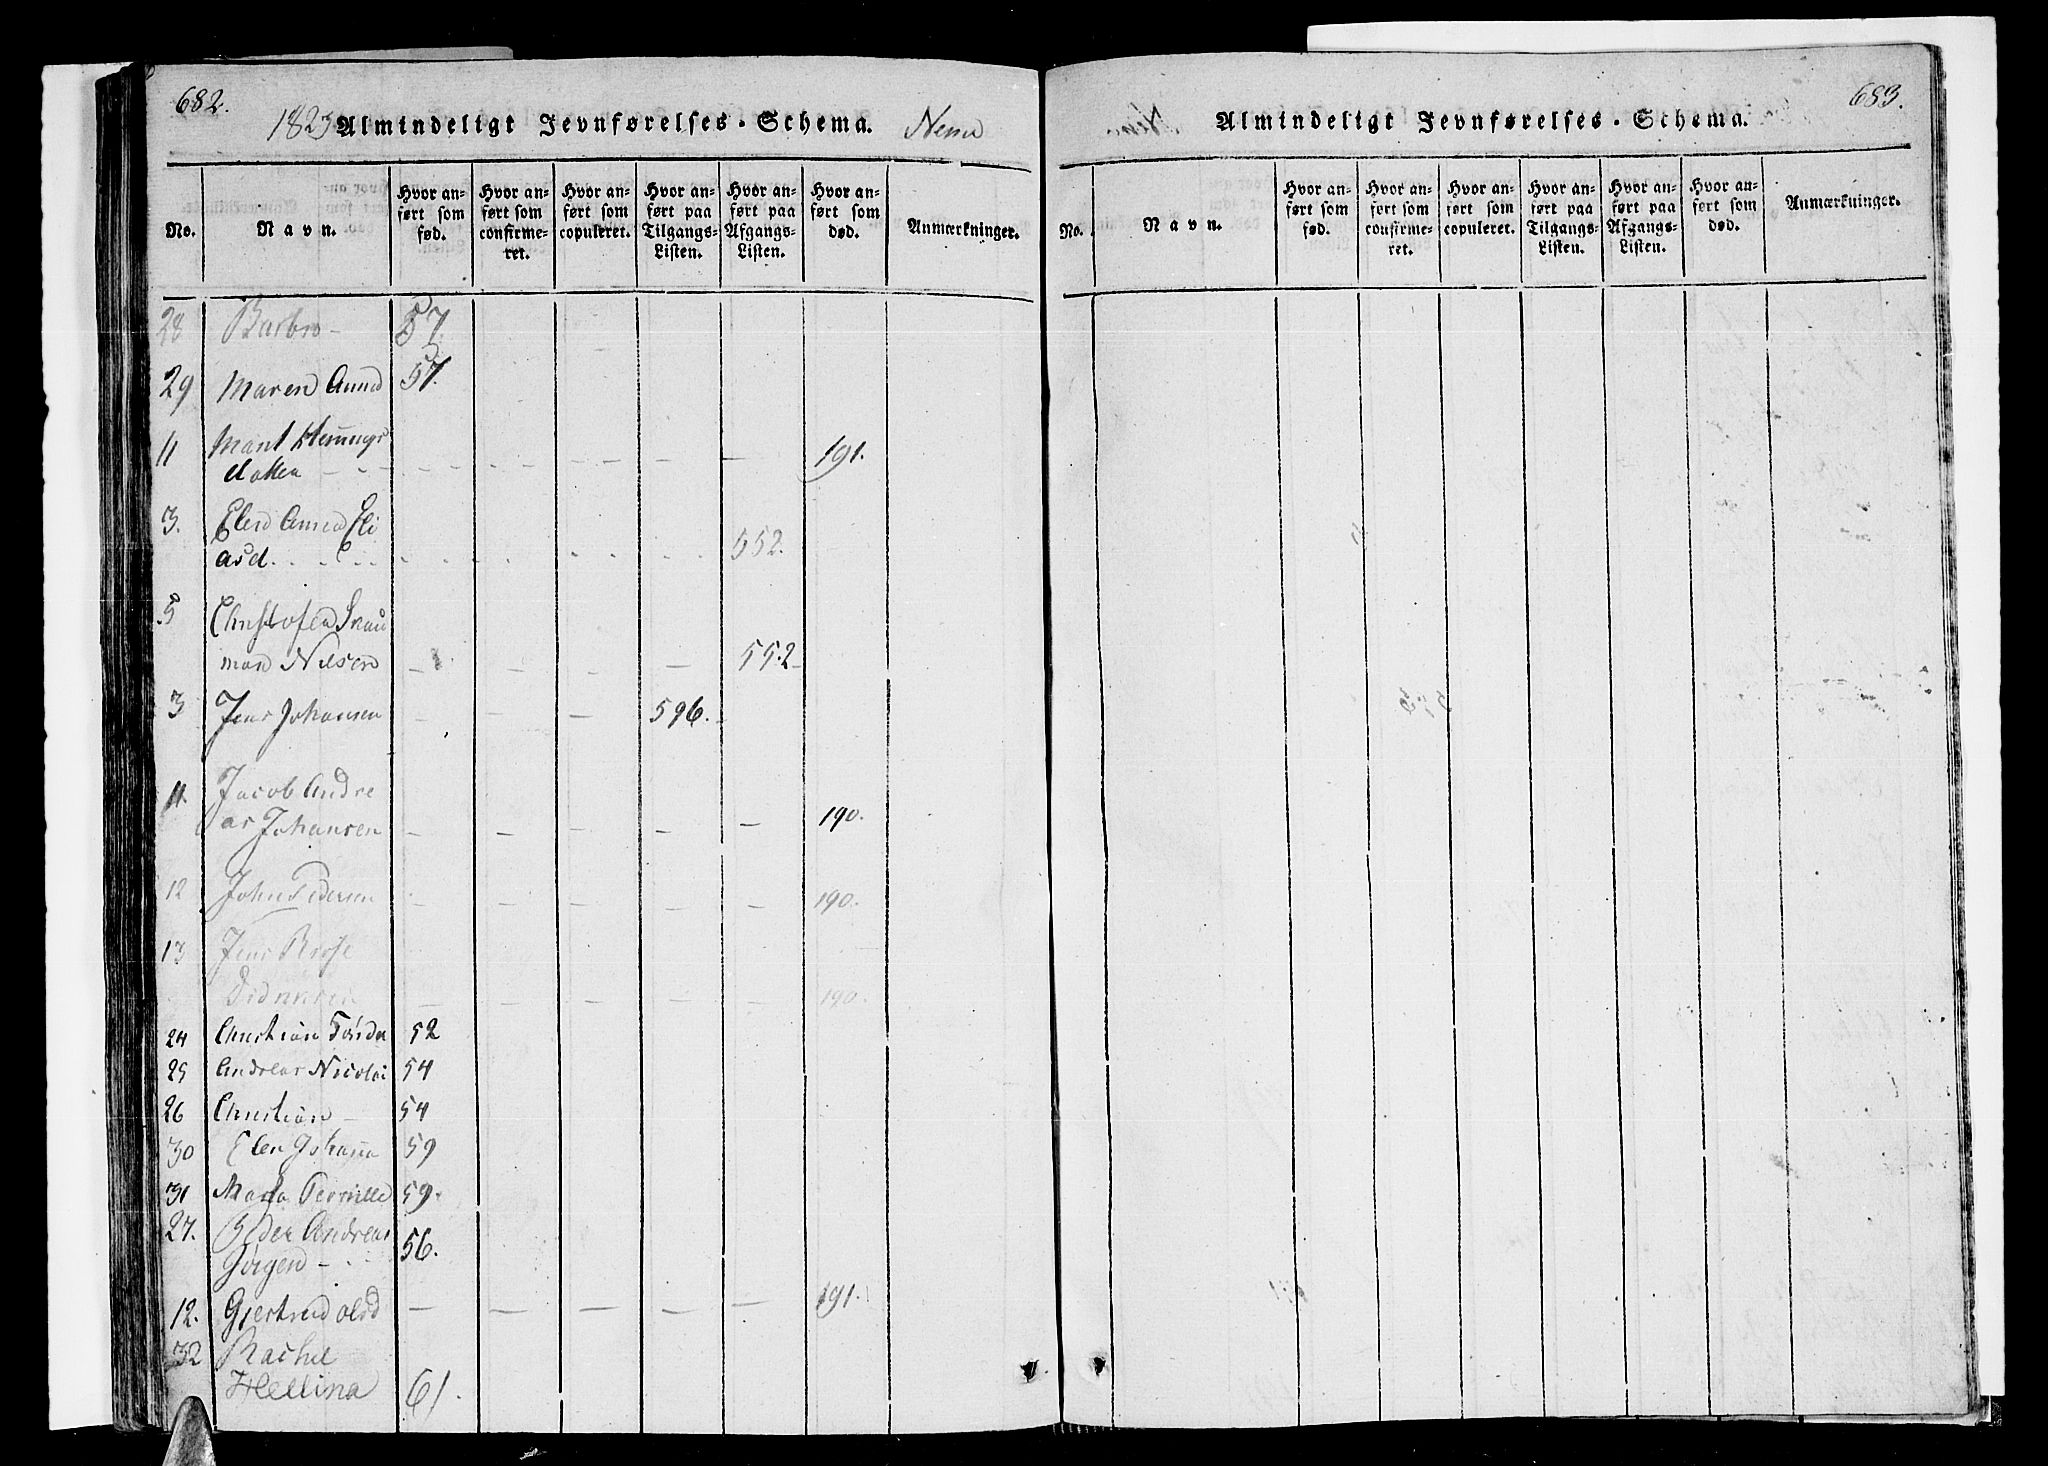 682.
1823 Almindeligt Jevnførelses-Schema. Nenn
No.
Navn.
Hvor an-
ført som
fød.
Hvor an-
ført som
confirme-
ret.
Hvor an-
ført som
copuleret.
Hvor an-
ført paa
Tilgangs-
Listen.
Hvor an-
ført paa
Afgangs-
Listen.
Hvor an-
ført som
død.
Anmærkninger.
28 Barbro - 57.
29 Maren Anna 57.
11 Marit Hemings
datter - - - - - - - 191.
3. Elen Anna Eli
asd. - - - - - 552.
5 Christofer
man Nilsen - - - - 552
3 Jens Johansen - - - 596.
11. Jacob Andre
as Johansen - - - - - 190.
12 John Pedersen - - - - - 190.
13 Jens
Didriksen - - - - - 190.
24 Christian 52
25 Andreas Nicolai 54
26 Christian - 54
30 Elen Johanna 59
31 Pernille 59.
27. Peder Andreas
Jørgen - - - 56.
12. Gjertrud olsd - - - - - 191.
32 Rachel
Hellina 61.
683.
Almindeligt Jevnførelses-Schema.
No.
Navn.
Hvor an-
ført som
fød.
Hvor an-
ført som
confirme-
ret.
Hvor an-
ført som
copuleret.
Hvor an-
ført paa
Tilgangs-
Listen.
Hvor an-
ført paa
Afgangs-
Listen.
Hvor an-
ført som
død.
Anmærkninger.